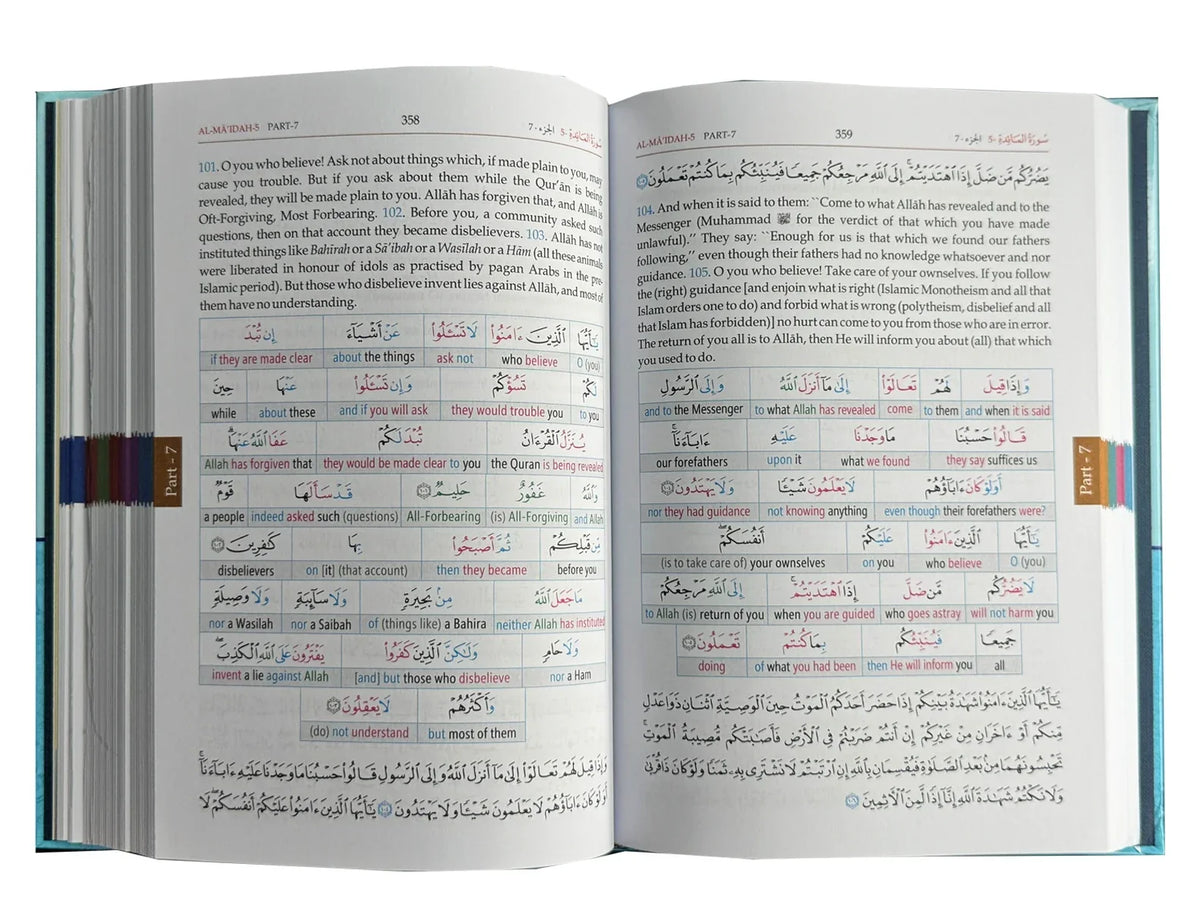 AL-MÂ'IDAH-5 PART-7 358 سُورَةُ المَائِدَةِ -5 الجزء - 7
101. O you who believe! Ask not about things which, if made plain to you, may
cause you trouble. But if you ask about them while the Qur'ân is being
revealed, they will be made plain to you. Allâh has forgiven that, and Allâh is
Oft-Forgiving, Most Forbearing. 102. Before you, a community asked such
questions, then on that account they became disbelievers. 103. Allâh has not
instituted things like Bahîrah or a Sâ'ibah or a Wasîlah or a Hâm (all these animals
were liberated in honour of idols as practised by pagan Arabs in the pre-
Islamic period). But those who disbelieve invent lies against Allâh, and most of
them have no understanding.
يَٰٓأَيُّهَا ٱلَّذِينَ ءَامَنُوا۟ لَا تَسْـَٔلُوا۟ عَنْ أَشْيَآءَ إِن تُبْدَ
O (you) who believe ask not about the things if they are made clear
لَكُمْ تَسُؤْكُمْ وَإِن تَسْـَٔلُوا۟ عَنْهَا حِينَ
to you they would trouble you and if you will ask about these while
يُنَزَّلُ ٱلْقُرْءَانُ تُبْدَ لَكُمْ عَفَا ٱللَّهُ عَنْهَا ۗ
the Quran is being revealed they would be made clear to you Allah has forgiven that
وَٱللَّهُ غَفُورٌ حَلِيمٌ ١٠١ قَدْ سَأَلَهَا قَوْمٌ
and Allah (is) All-Forgiving All-Forbearing indeed asked such (questions) a people
مِّن قَبْلِكُمْ ثُمَّ أَصْبَحُوا۟ بِهَا كَٰفِرِينَ ١٠٢
before you then they became on [it] (that account) disbelievers
مَا جَعَلَ ٱللَّهُ مِنۢ بَحِيرَةٍ وَلَا سَآئِبَةٍ وَلَا وَصِيلَةٍ
neither Allah has instituted of (things like) a Bahira nor a Saibah nor a Wasilah
وَلَا حَامٍ وَلَٰكِنَّ ٱلَّذِينَ كَفَرُوا۟ يَفْتَرُونَ عَلَى ٱللَّهِ ٱلْكَذِبَ ۖ
nor a Ham [and] but those who disbelieve invent a lie against Allah
وَأَكْثَرُهُمْ لَا يَعْقِلُونَ ١٠٣
but most of them (do) not understand
وَإِذَا قِيلَ لَهُمْ تَعَالَوْا۟ إِلَىٰ مَآ أَنزَلَ ٱللَّهُ وَإِلَى ٱلرَّسُولِ قَالُوا۟ حَسْبُنَا مَا وَجَدْنَا عَلَيْهِ ءَابَآءَنَآ ۚ
أَوَلَوْ كَانَ ءَابَآؤُهُمْ لَا يَعْلَمُونَ شَيْـًٔا وَلَا يَهْتَدُونَ ١٠٤ يَٰٓأَيُّهَا ٱلَّذِينَ ءَامَنُوا۟ عَلَيْكُمْ أَنفُسَكُمْ ۖ لَا
Part - 7
AL-MÂ'IDAH-5 PART-7 359 سُورَةُ المَائِدَةِ -5 الجزء - 7
يَضُرُّكُم مَّن ضَلَّ إِذَا ٱهْتَدَيْتُمْ ۚ إِلَى ٱللَّهِ مَرْجِعُكُمْ جَمِيعًا فَيُنَبِّئُكُم بِمَا كُنتُمْ تَعْمَلُونَ ١٠٥
104. And when it is said to them: ``Come to what Allâh has revealed and to the
Messenger (Muhammad ﷺ for the verdict of that which you have made
unlawful).'' They say: ``Enough for us is that which we found our fathers
following,'' even though their fathers had no knowledge whatsoever and nor
guidance. 105. O you who believe! Take care of your ownselves. If you follow
the (right) guidance [and enjoin what is right (Islamic Monotheism and all that
Islam orders one to do) and forbid what is wrong (polytheism, disbelief and all
that Islam has forbidden)] no hurt can come to you from those who are in error.
The return of you all is to Allâh, then He will inform you about (all) that which
you used to do.
وَإِذَا قِيلَ لَهُمْ تَعَالَوْا۟ إِلَىٰ مَآ أَنزَلَ ٱللَّهُ وَإِلَى ٱلرَّسُولِ
and when it is said to them come to what Allah has revealed and to the Messenger
قَالُوا۟ حَسْبُنَا مَا وَجَدْنَا عَلَيْهِ ءَابَآءَنَآ ۚ
they say suffices us what we found upon it our forefathers
أَوَلَوْ كَانَ ءَابَآؤُهُمْ لَا يَعْلَمُونَ شَيْـًٔا وَلَا يَهْتَدُونَ ١٠٤
even though their forefathers were? not knowing anything nor they had guidance
يَٰٓأَيُّهَا ٱلَّذِينَ ءَامَنُوا۟ عَلَيْكُمْ أَنفُسَكُمْ ۖ
O (you) who believe on you (is to take care of) your ownselves
لَا يَضُرُّكُم مَّن ضَلَّ إِذَا ٱهْتَدَيْتُمْ ۚ إِلَى ٱللَّهِ مَرْجِعُكُمْ
will not harm you who goes astray when you are guided to Allah (is) return of you
جَمِيعًا فَيُنَبِّئُكُم بِمَا كُنتُمْ تَعْمَلُونَ ١٠٥
all then He will inform you of what you had been doing
يَٰٓأَيُّهَا ٱلَّذِينَ ءَامَنُوا۟ شَهَٰدَةُ بَيْنِكُمْ إِذَا حَضَرَ أَحَدَكُمُ ٱلْمَوْتُ حِينَ ٱلْوَصِيَّةِ ٱثْنَانِ ذَوَا عَدْلٍ
مِّنكُمْ أَوْ ءَاخَرَانِ مِنْ غَيْرِكُمْ إِنْ أَنتُمْ ضَرَبْتُمْ فِى ٱلْأَرْضِ فَأَصَٰبَتْكُم مُّصِيبَةُ ٱلْمَوْتِ ۚ
تَحْبِسُونَهُمَا مِنۢ بَعْدِ ٱلصَّلَوٰةِ فَيُقْسِمَانِ بِٱللَّهِ إِنِ ٱرْتَبْتُمْ لَا نَشْتَرِى بِهِۦ ثَمَنًا وَلَوْ كَانَ ذَا قُرْبَىٰ ۙ
وَلَا نَكْتُمُ شَهَٰدَةَ ٱللَّهِ إِنَّآ إِذًا لَّمِنَ ٱلْءَاثِمِينَ ١٠٦
Part - 7